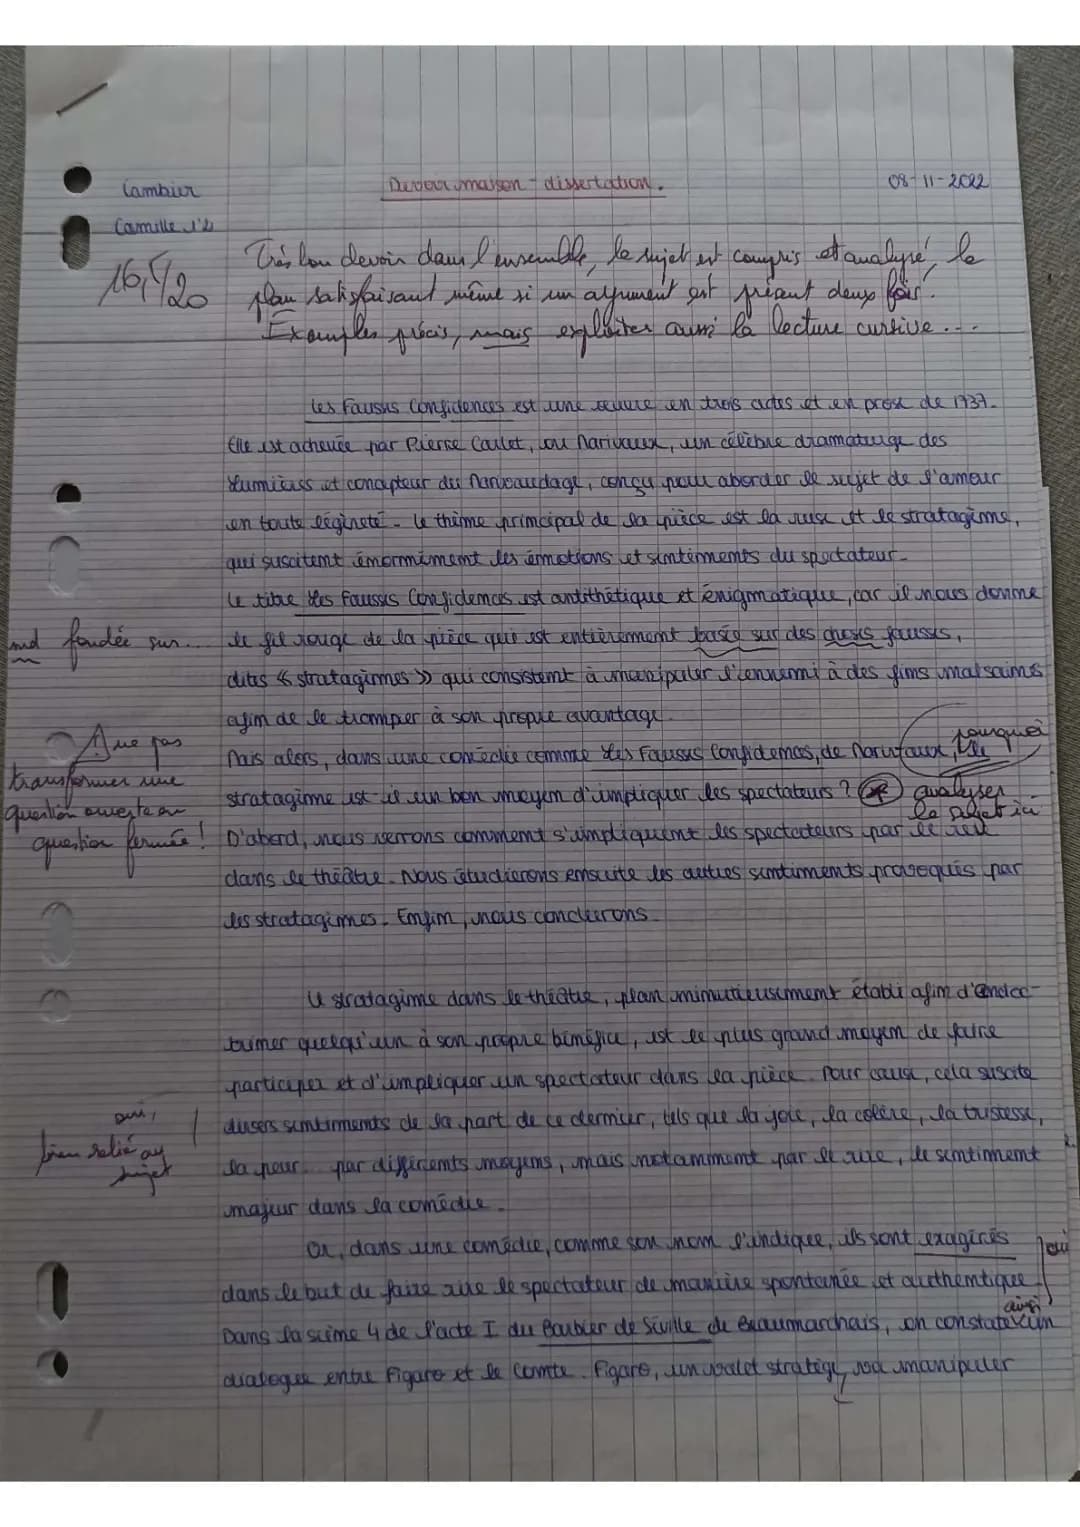 Cambier
Devoir maison - dissertation.
08-11-2022
Camille 1°2
16,5/20
Très bon devoir dans l'ensemble, le sujet est compris et analysé, le
plan satisfaisant même si un argument est présent deux fois.
Exemples précis, mais exploiter aussi la lecture cursive...
Les Fausses Confidences est une oeuvre en trois actes et en prose de 1737.
Elle est achevée par Pierre Carlet, ou Marivaux, un célèbre dramaturge des
Lumières et concepteur du Marivaudage, conçu pour aborder le sujet de l'amour
en toute légèreté. Le thème principal de la pièce est la ruse et le stratagème,
qui suscitent énormément les émotions et sentiments du spectateur.
Le titre Les Fausses Confidences est antithétique et énigmatique, car il nous donne
md fondée sur...
le fil rouge de la pièce qui est entièrement basée sur des choses fausses,
dites « stratagèmes » qui consistent à manipuler l'ennemi à des fins malsaines
afin de le tromper à son propre avantage.
⚠ Ne pas transformer une question ouverte en question fermée !
Mais alors, dans une comédie comme Les Fausses Confidences, de Marivaux, le
pourquoi
stratagème est-il un bon moyen d'impliquer les spectateurs ?
analyser le sujet ici
D'abord, nous verrons comment s'impliquent les spectateurs par le rire
dans le théâtre. Nous étudierons ensuite les autres sentiments provoqués par
les stratagèmes. Enfin, nous conclurons.
Le stratagème dans le théâtre, plan minutieusement établi afin d'endoc-
trimer quelqu'un à son propre bénéfice, est le plus grand moyen de faire
participer et d'impliquer un spectateur dans la pièce. Pour cause, cela suscite
oui, bien relié au sujet
divers sentiments de la part de ce dernier, tels que la joie, la colère, la tristesse,
la peur... par différents moyens, mais notamment par le rire, le sentiment
majeur dans la comédie.
Or, dans une comédie, comme son nom l'indique, ils sont exagérés
oui
dans le but de faire rire le spectateur de manière spontanée et authentique.
ainsi
Dans la scène 4 de l'acte I du Barbier de Séville de Beaumarchais, on constate un
dialogue entre Figaro et le Comte. Figaro, un valet stratège, va manipuler